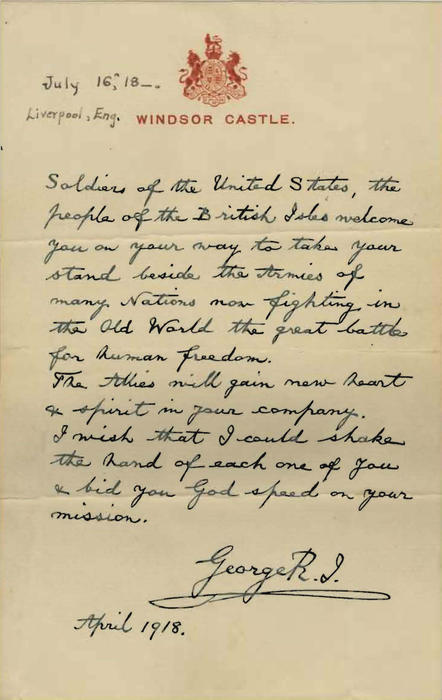 July 16, 18—.
Liverpool, Eng.
WINDSOR CASTLE.
Soldiers of the United States, the
people of the British Isles welcome
you on your way to take your
stand beside the Armies of
many Nations now fighting in
the Old World the great battle
for human freedom.
The Allies will gain new heart
& spirit in your company.
I wish that I could shake
the hand of each one of you
& bid you God speed on your
mission.
George R. I.
April 1918.